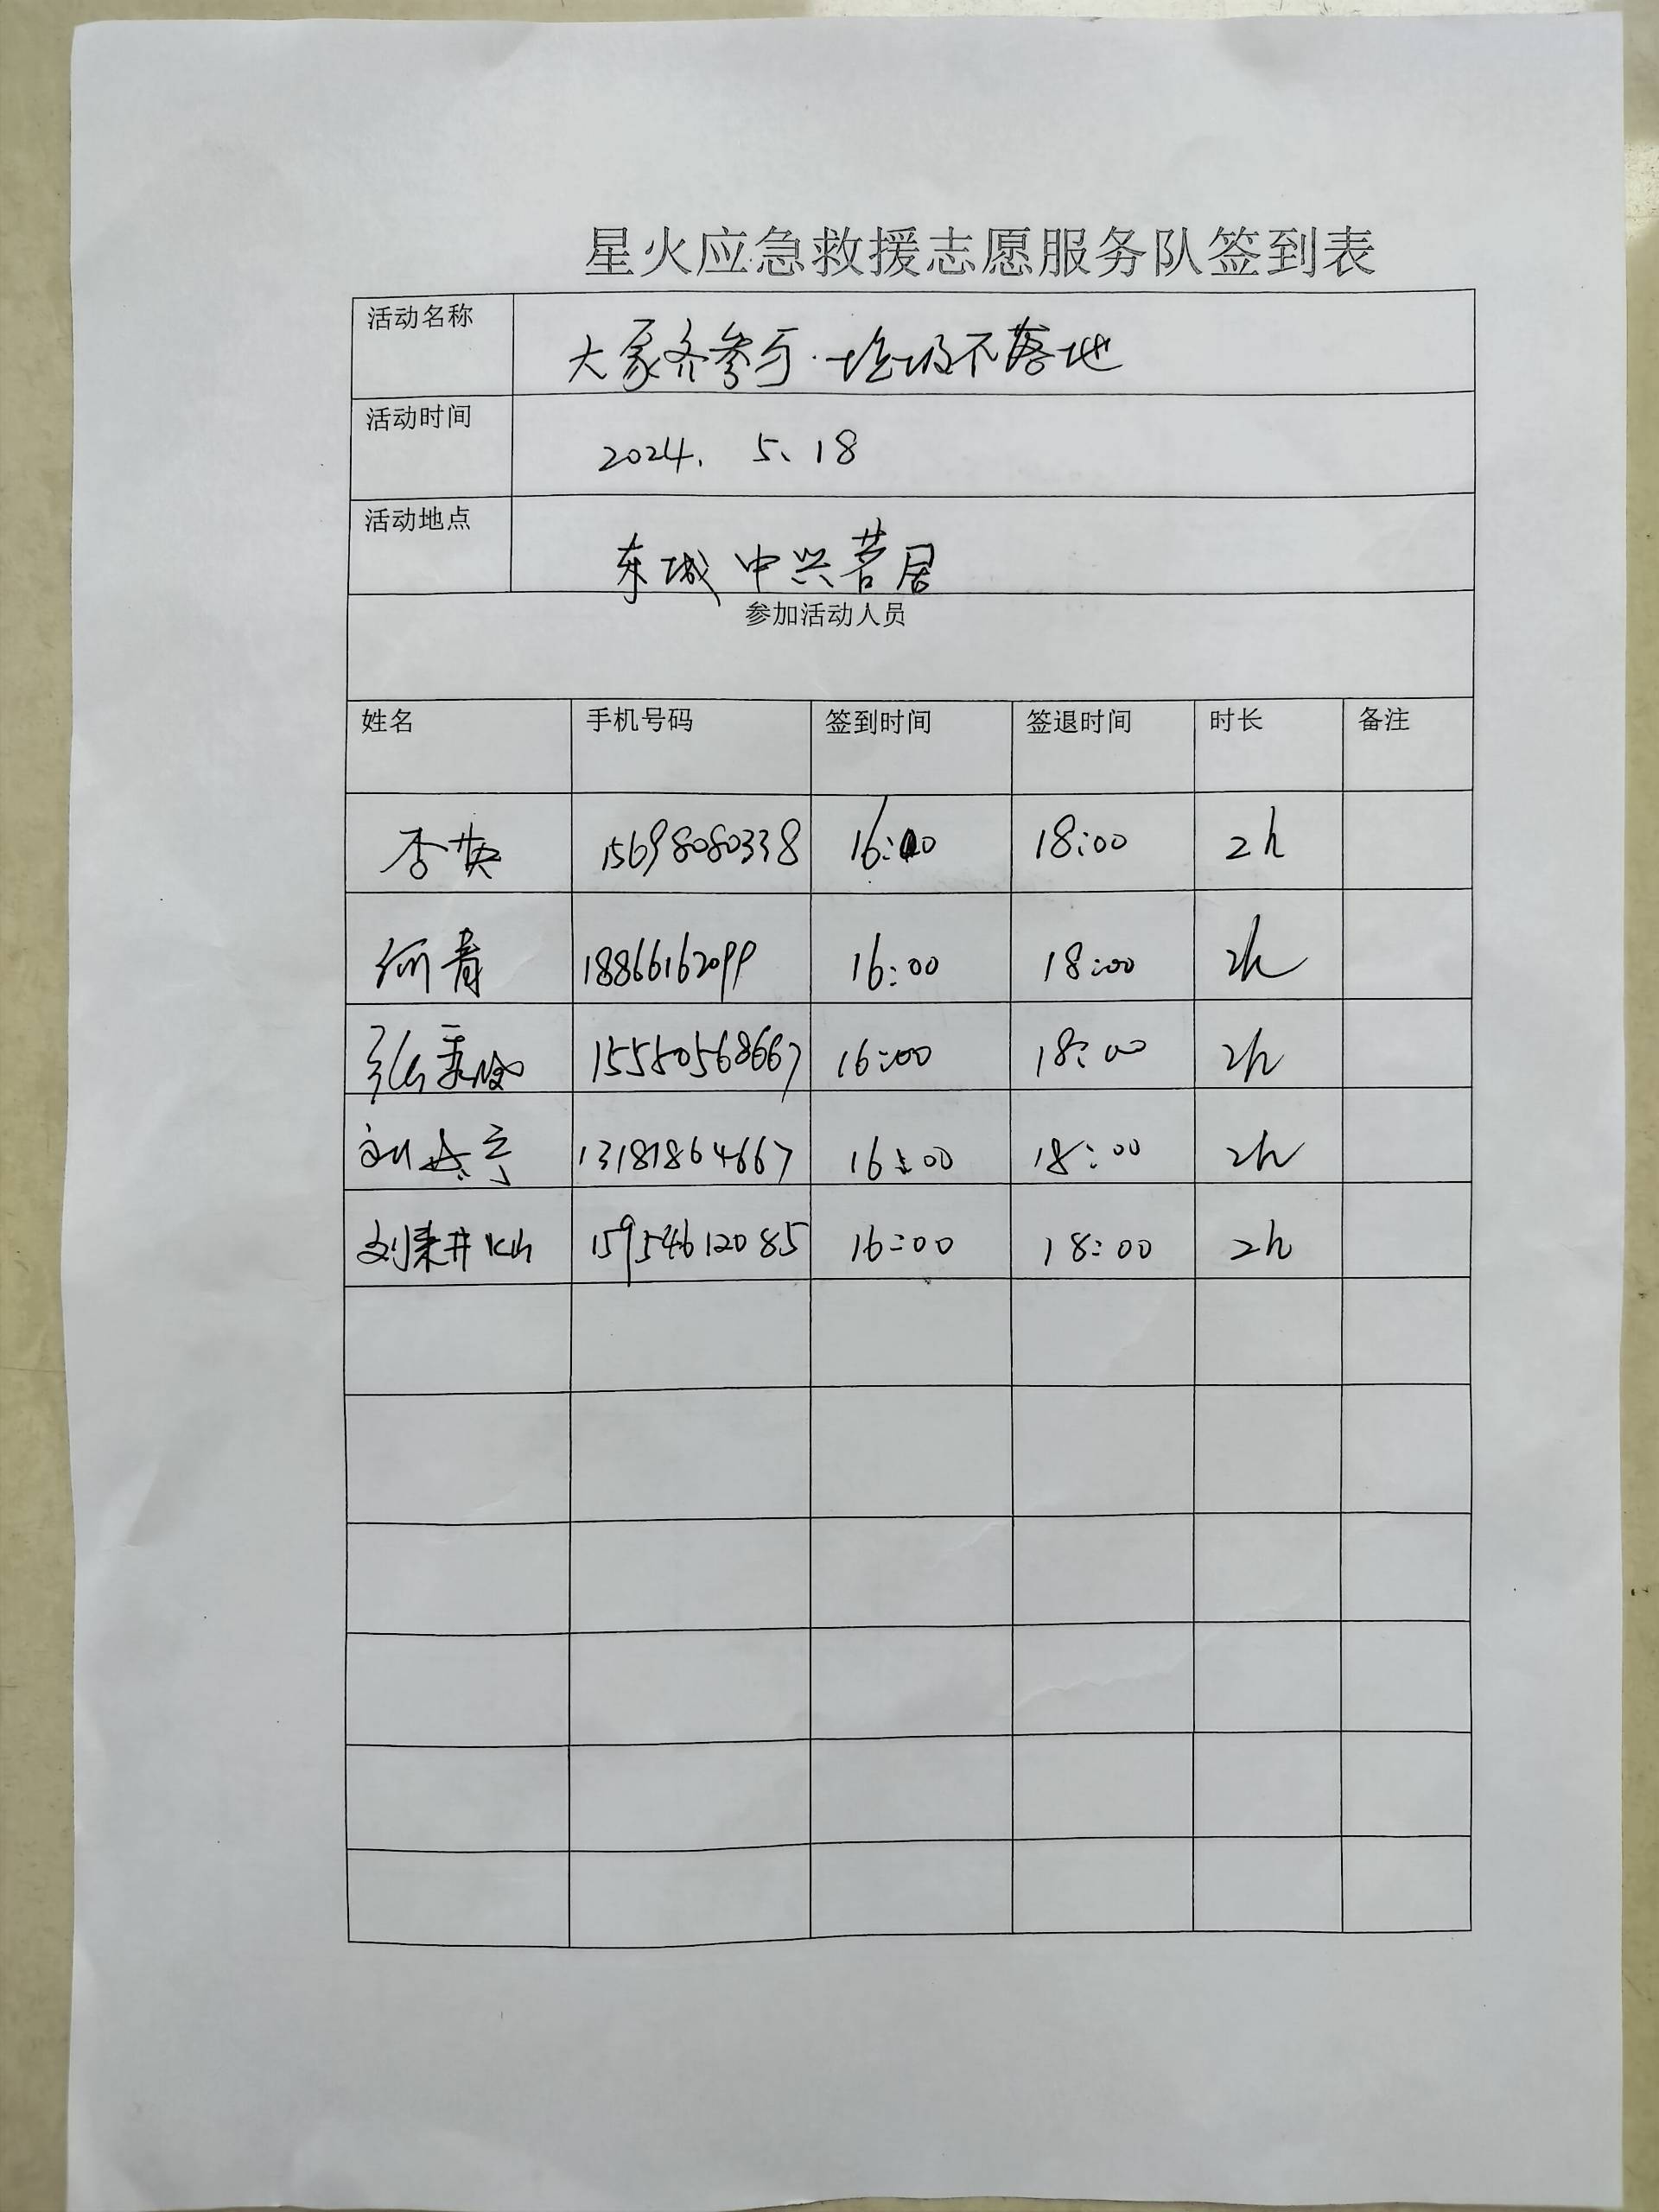 星火应急救援志愿服务队签到表
活动名称 大家齐参与·垃圾不落地
活动时间 2024. 5.18
活动地点 东城 中兴茗居
参加活动人员
姓名 手机号码 签到时间 签退时间 时长 备注
李英 15698080338 16:00 18:00 2h
何青 18866162099 16:00 18:00 2h
15550568667 16:00 18:00 2h
13181864667 16:00 18:00 2h
15954612085 16:00 18:00 2h